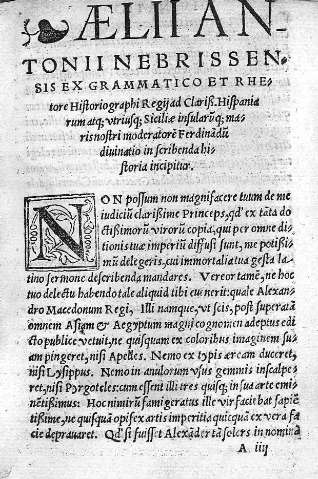 ÆLII AN-
TONII NEBRISSEN-
SIS EX GRAMMATICO ET RHE-
tore Historiographi Regij ad Clariss. Hispania
rum atq; vtriusq; Siciliæ insularūq; ma-
ris nostri moderatorē Ferdinādū
diuinatio in scribenda hi-
storia incipitur.
NON possum non magnifacere tuum de me
iudiciū clarissime Princeps, qd' ex tāta do
ctissimorū virorū copia, qui per omne di
tionis tuæ imperiū diffusi sunt, me potissi-
mū delegeris, cui immortalia tua gesta la
tino sermone describenda mandares. Vereor tamē, ne hoc
tuo delectu habendo tale aliquid tibi euenerit: quale Alexan-
dro Macedonum Regi, Illi namque, vt scis, post superatā
omnem Asiam & Aegyptum magni cognomen adeptus edi
cto publice vetuit, ne quisquam ex coloribus imaginem su-
am pingeret, nisi Apelles. Nemo ex typis æream duceret,
nisi Lysippus. Nemo in anulorum vsus gemmis inscalpe-
ret, nisi Pyrgoteles: cum essent illi tres quisq; in sua arte emi-
nētissimus: Hoc nimirū famigeratus ille vir facit bat sapiē
tissime, ne quisquā opifex artis imperitia quicquā ex vera fa
cie deprauaret. Qd' si fuisset Alexāder tā solers in nominā
A iiij